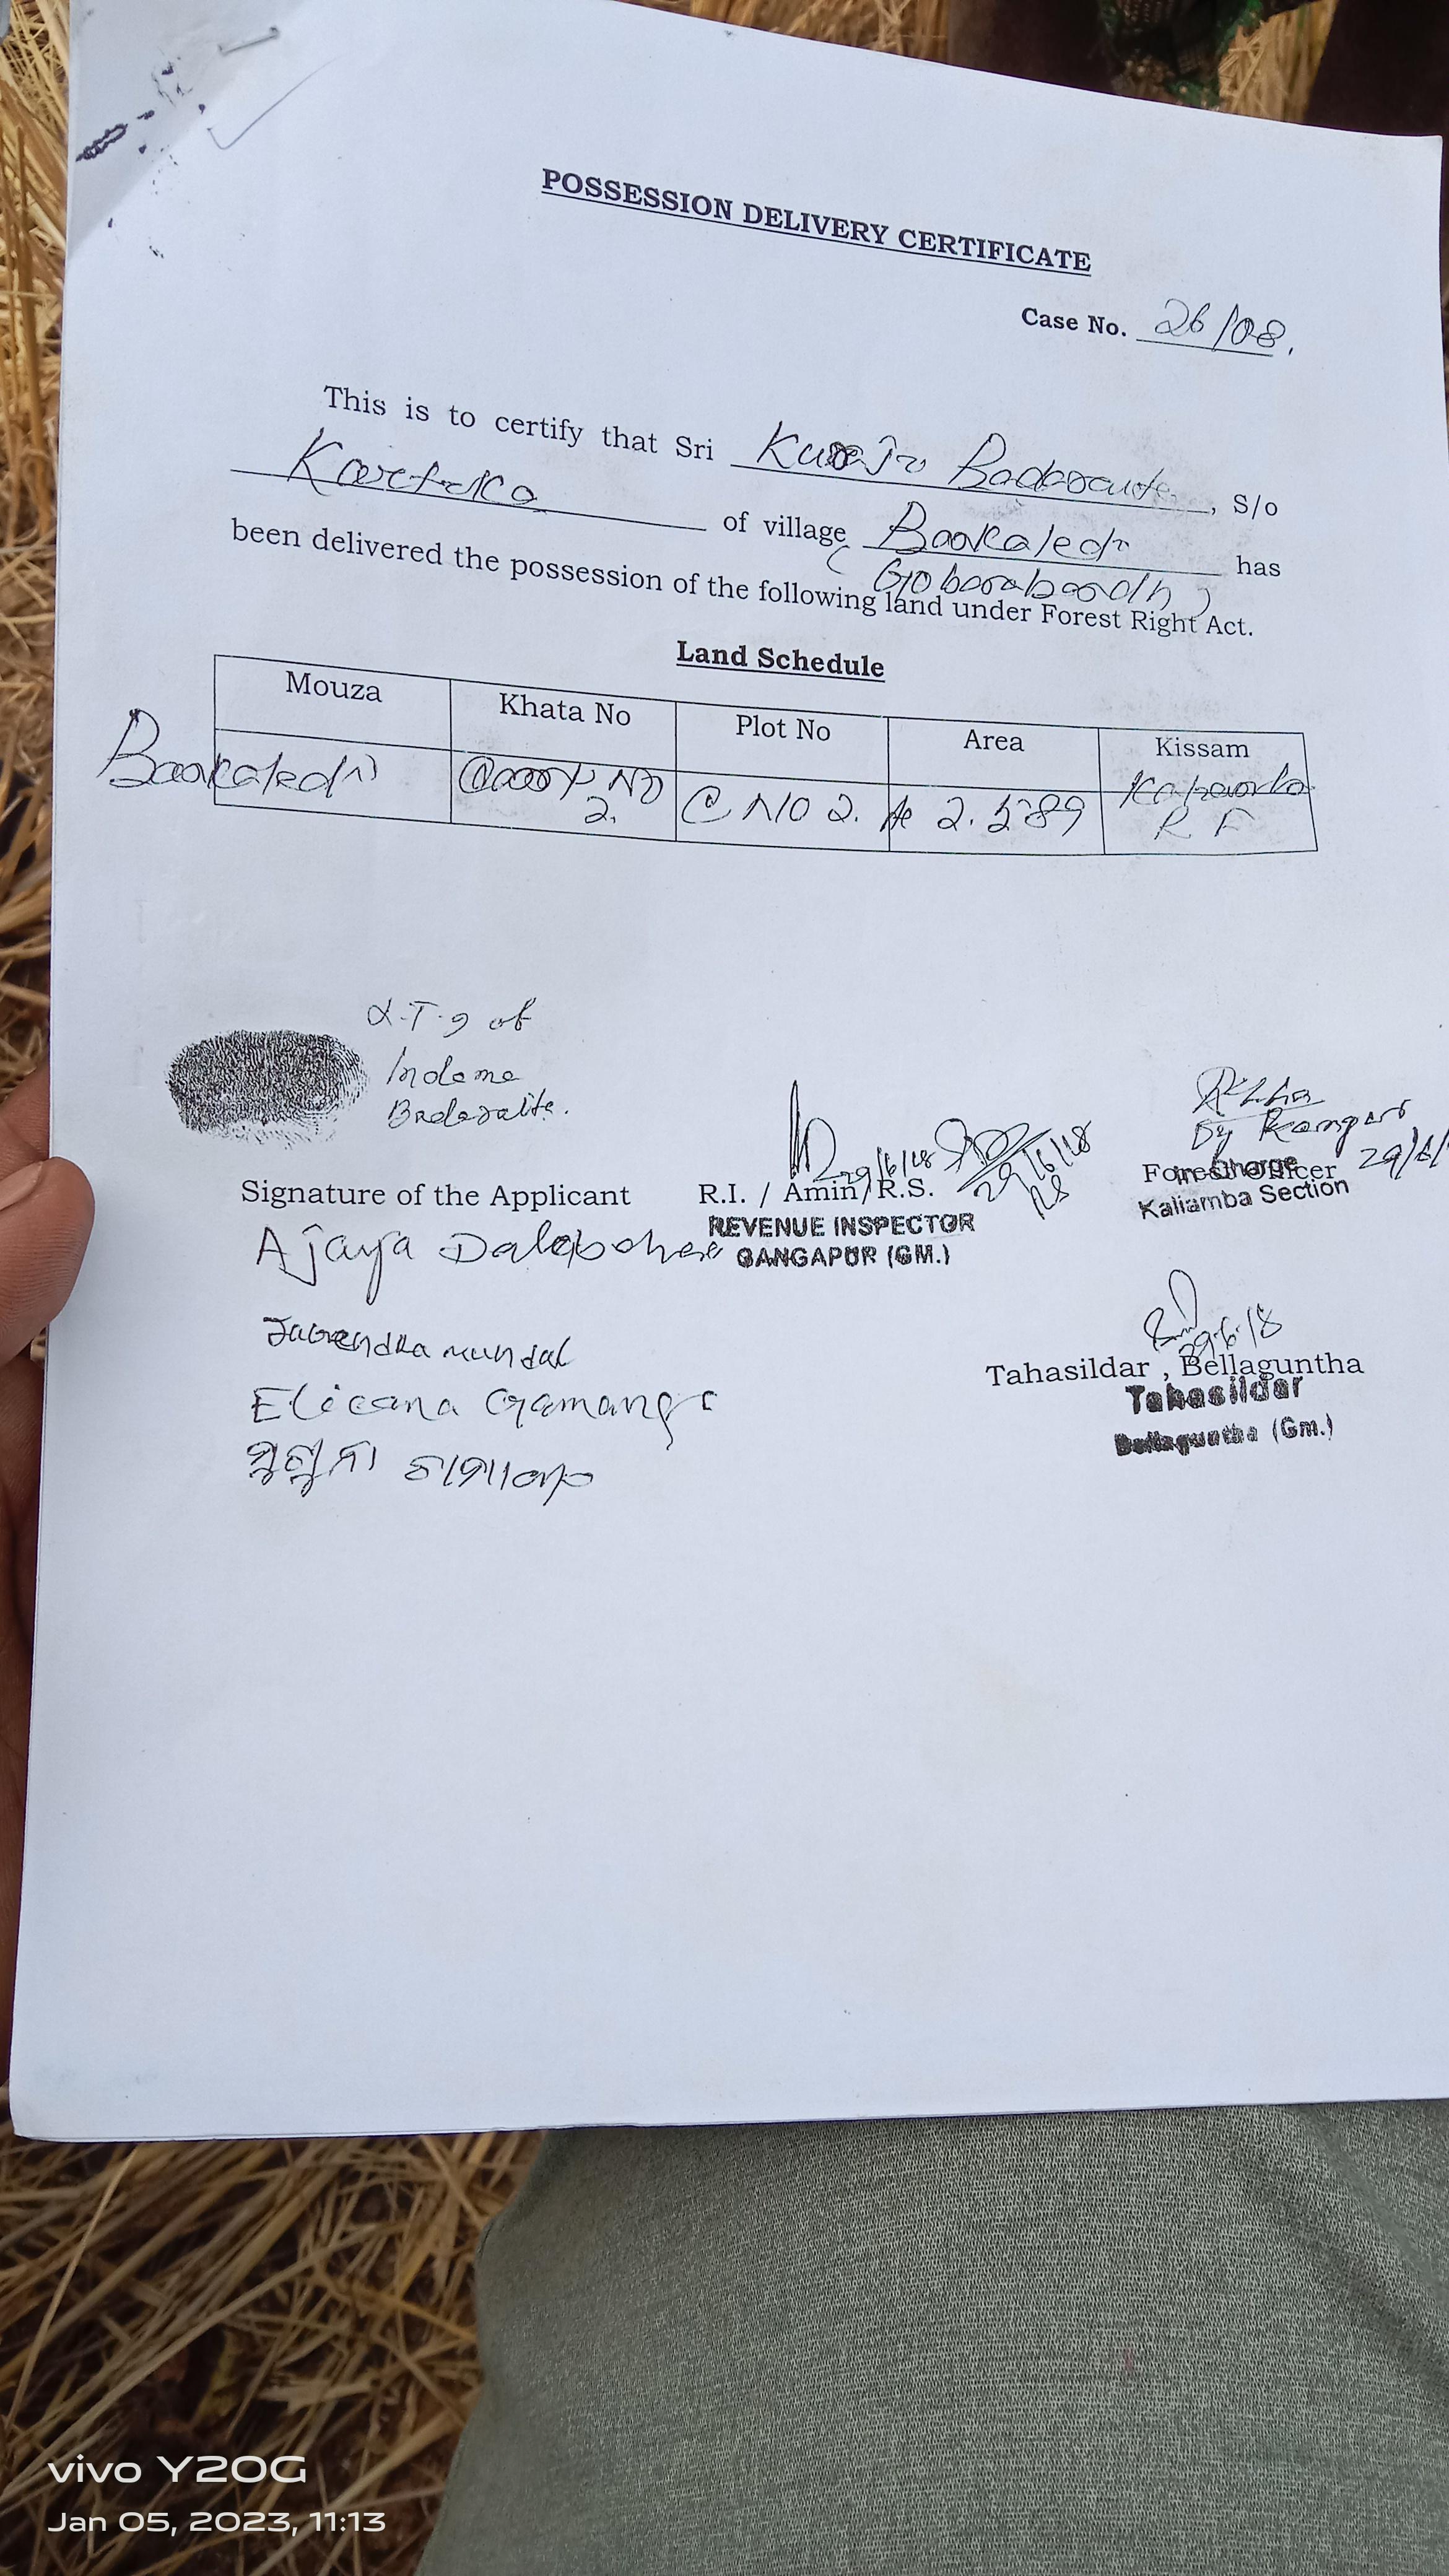 POSSESSION DELIVERY CERTIFICATE
Case No. 26/08.
This is to certify that Sri Badaraita, S/o
Kartika of village has
been delivered the possession of the following land under Forest Right Act.
Land Schedule
Mouza Khata No Plot No Area Kissam
No 2. C No 2. Ac 2.589 R F
L.T.I of
Badaraita.
Dy Ranger
29/6/18 29/6/18 29/6/
Signature of the Applicant R.I. / Amin/R.S. Forest Officer
In-Charge
Kaliamba Section
REVENUE INSPECTOR
GANGAPUR (GM.)
Ajaya
29.6.18
Tahasildar , Bellaguntha
Tahasildar
Bellaguntha (Gm.)
Elicana Gamango
vivo Y20G
Jan 05, 2023, 11:13